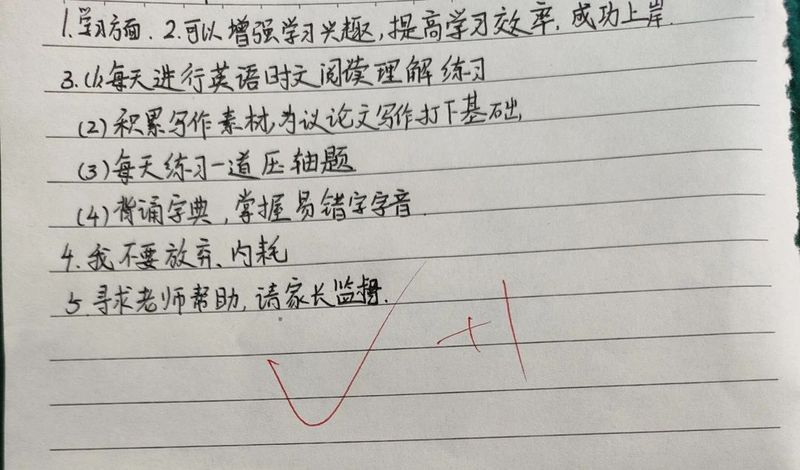 1.学习方面. 2.可以增强学习兴趣,提高学习效率,成功上岸.
3.(1)每天进行英语时文阅读理解练习
(2)积累写作素材,为议论文写作打下基础
(3)每天练习一道压轴题
(4)背诵字典,掌握易错字字音.
4.我不要放弃、内耗
5.寻求老师帮助,请家长监督.
+1